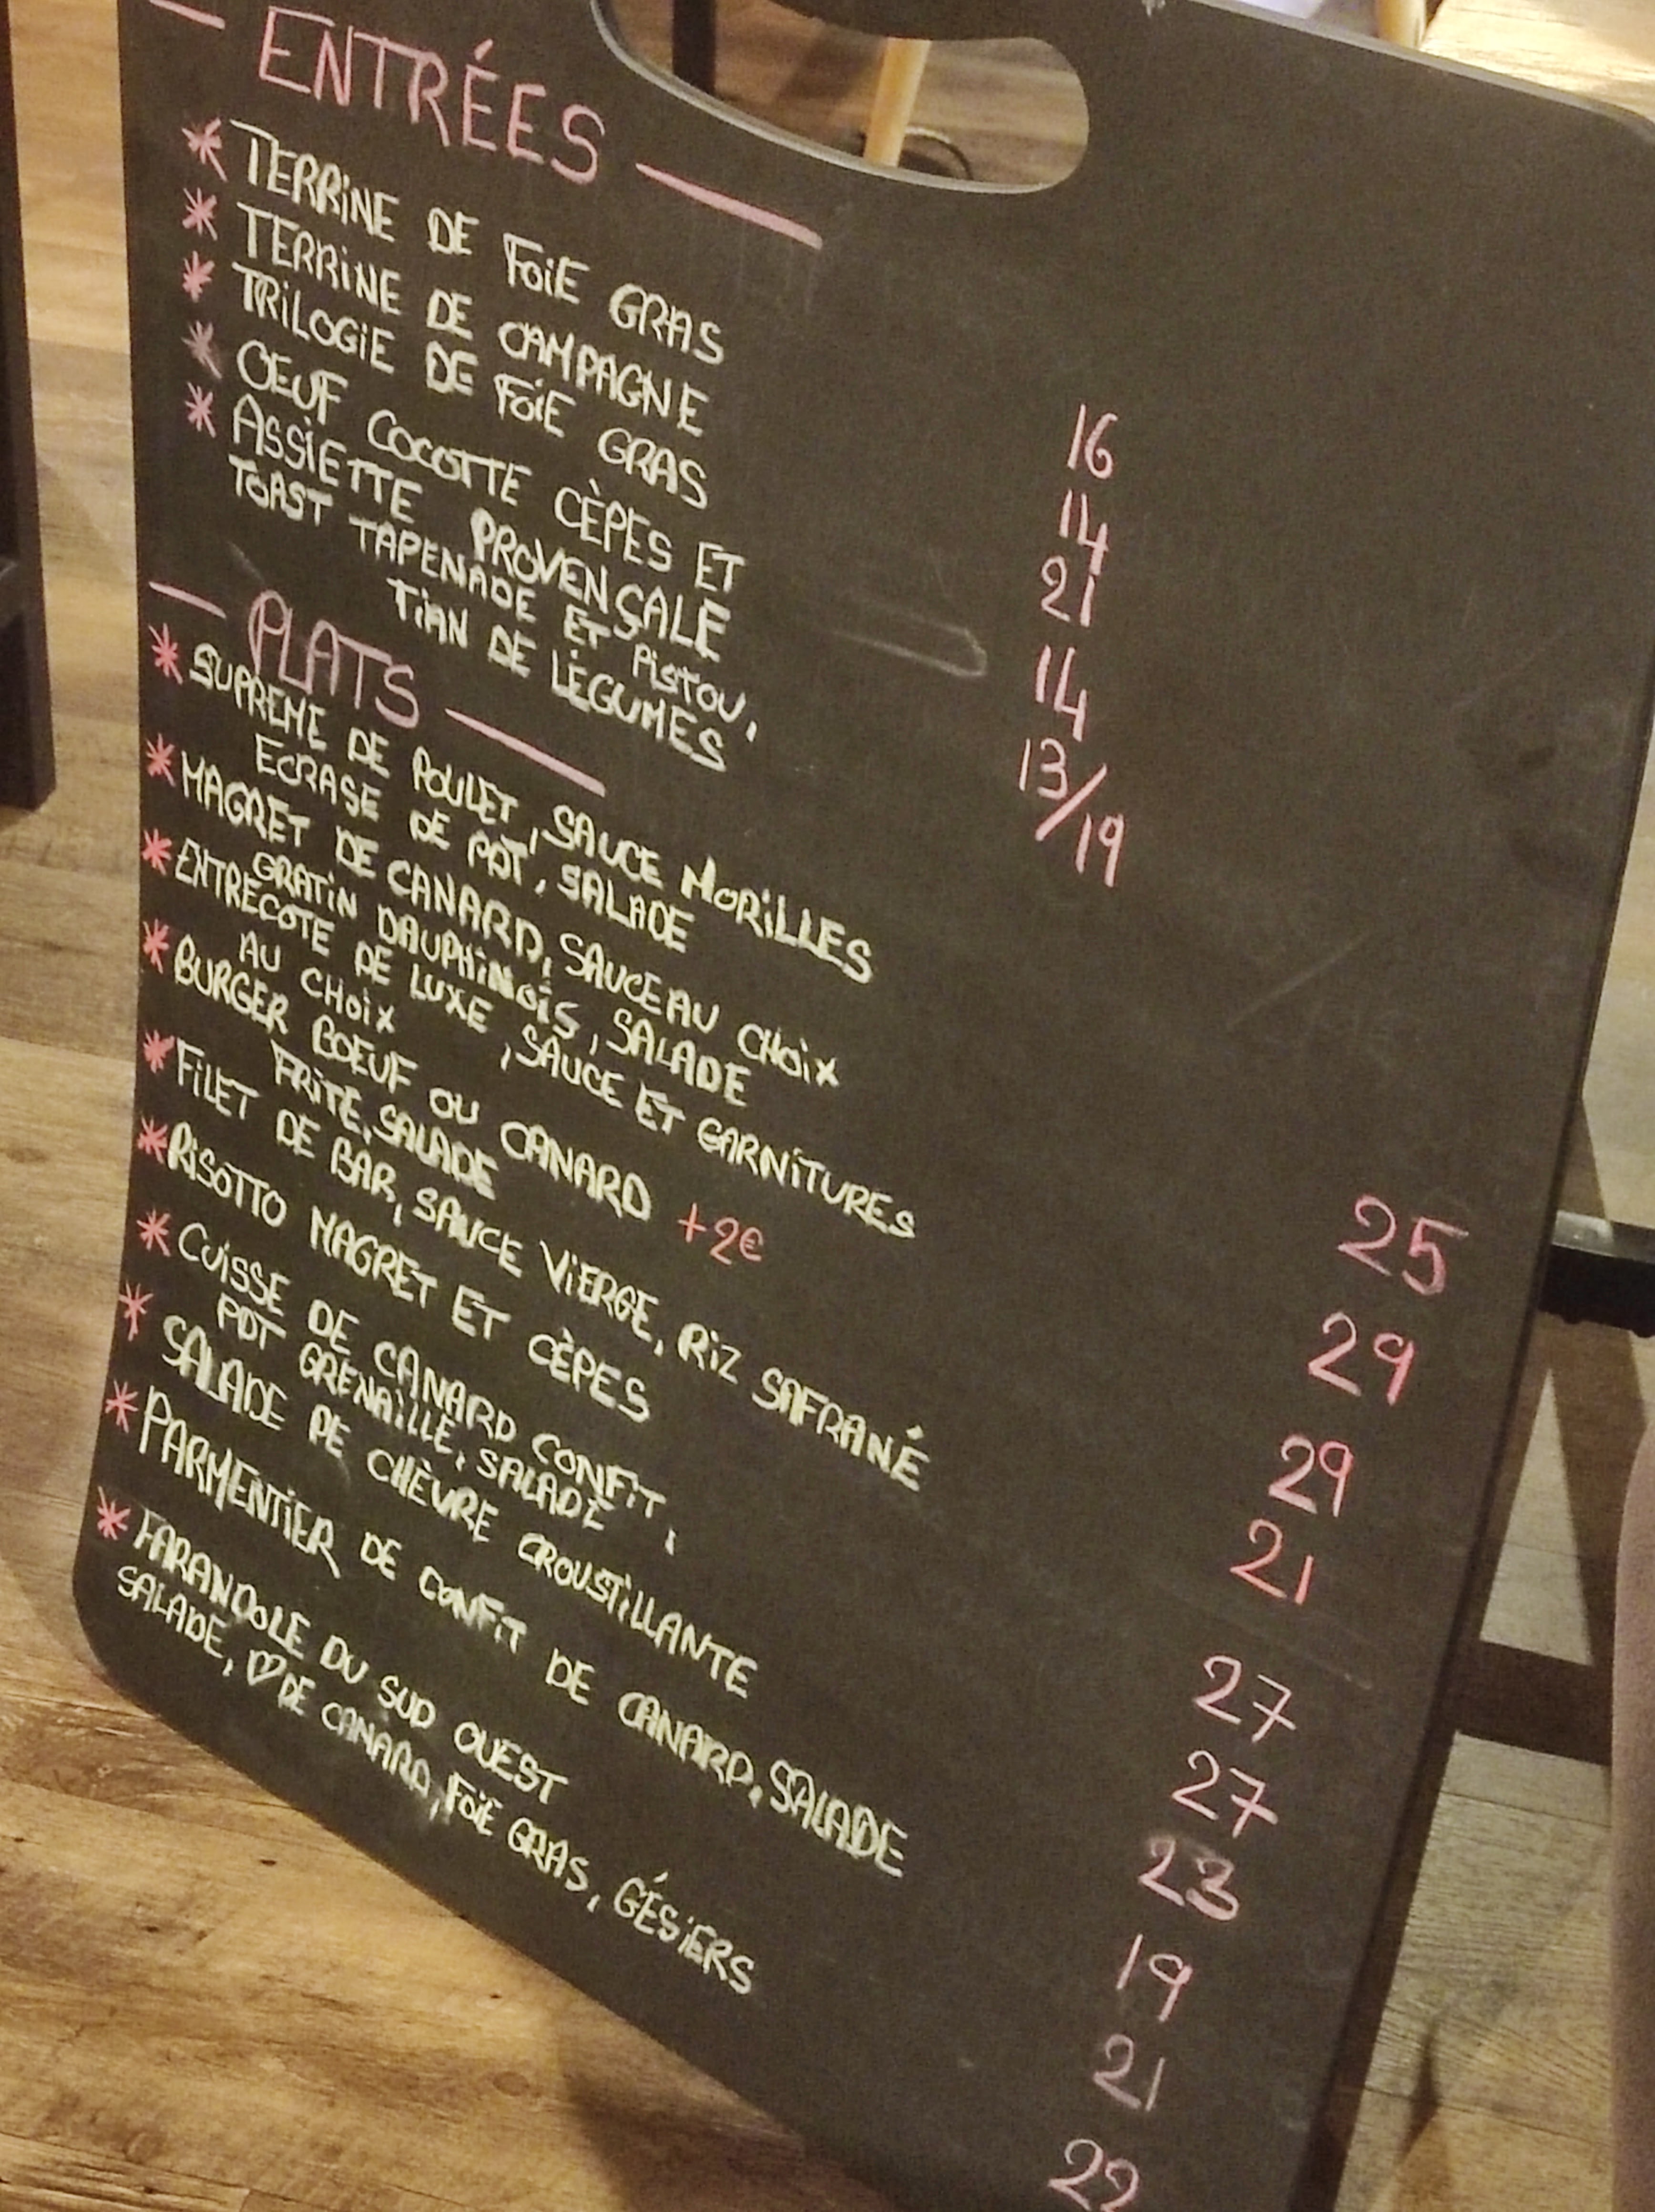 ENTRÉES
* TERRINE DE FOIE GRAS 16
* TERRINE DE CAMPAGNE 14
* TRILOGIE DE FOIE GRAS 21
* OEUF COCOTTE CÈPES ET 14
* ASSIETTE PROVENÇALE 13/19
TOAST TAPENADE ET PISTOU,
TIAN DE LÉGUMES
PLATS
* SUPREME DE POULET, SAUCE MORILLES 25
ECRASE DE PDT, SALADE
* MAGRET DE CANARD, SAUCE AU CHOIX 29
GRATIN DAUPHINOIS, SALADE
* ENTRECOTE DE LUXE, SAUCE ET GARNITURES 29
AU CHOIX
* BURGER BOEUF OU CANARD +2€ 21
FRITE, SALADE
* FILET DE BAR, SAUCE VIERGE, RIZ SAFRANÉ 27
* RISOTTO MAGRET ET CÈPES 27
* CUISSE DE CANARD CONFIT, 23
PDT GRENAILLE, SALADE
* SALADE DE CHÈVRE CROUSTILLANTE 19
* PARMENTIER DE CONFIT DE CANARD, SALADE 21
* FARANDOLE DU SUD OUEST 22
SALADE, ♡ DE CANARD, FOIE GRAS, GÉSIERS